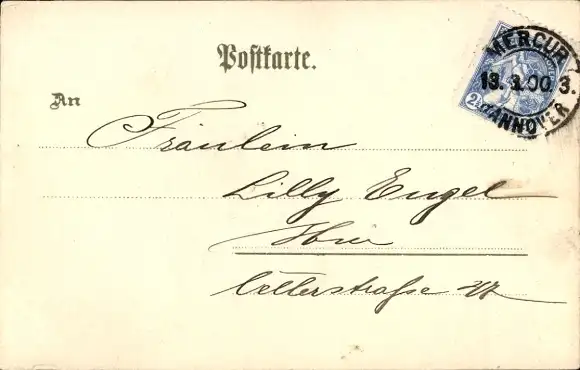 Postkarte.
MERCUR
13. 3.00. 3.
HANNOVER
2
An
Fräulein
Lilly Engel
Hier
Cellerstraße